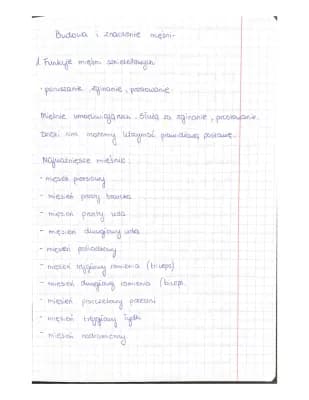 Budowa i znaczenie mięśni.
1. Funkcje mięśni szkieletowych
- poruszanie, zginanie, prostowanie.
Mięśnie umożliwiają ruch. Służą za zginanie, prostowanie.
Dzięki nim możemy utrzymać prawidłową postawę.
Najważniejsze mięśnie:
- mięsień piersiowy
- mięsień prosty brzucha
- mięsień prosty uda
- mięsień dwugłowy uda
- mięsień pośladkowy
- mięsień trójgłowy ramienia (triceps)
- mięsień dwugłowy ramienia (biceps
- mięsień piszczelowy przedni
- mięsień trójgłowy łydki
- mięsień naramienny